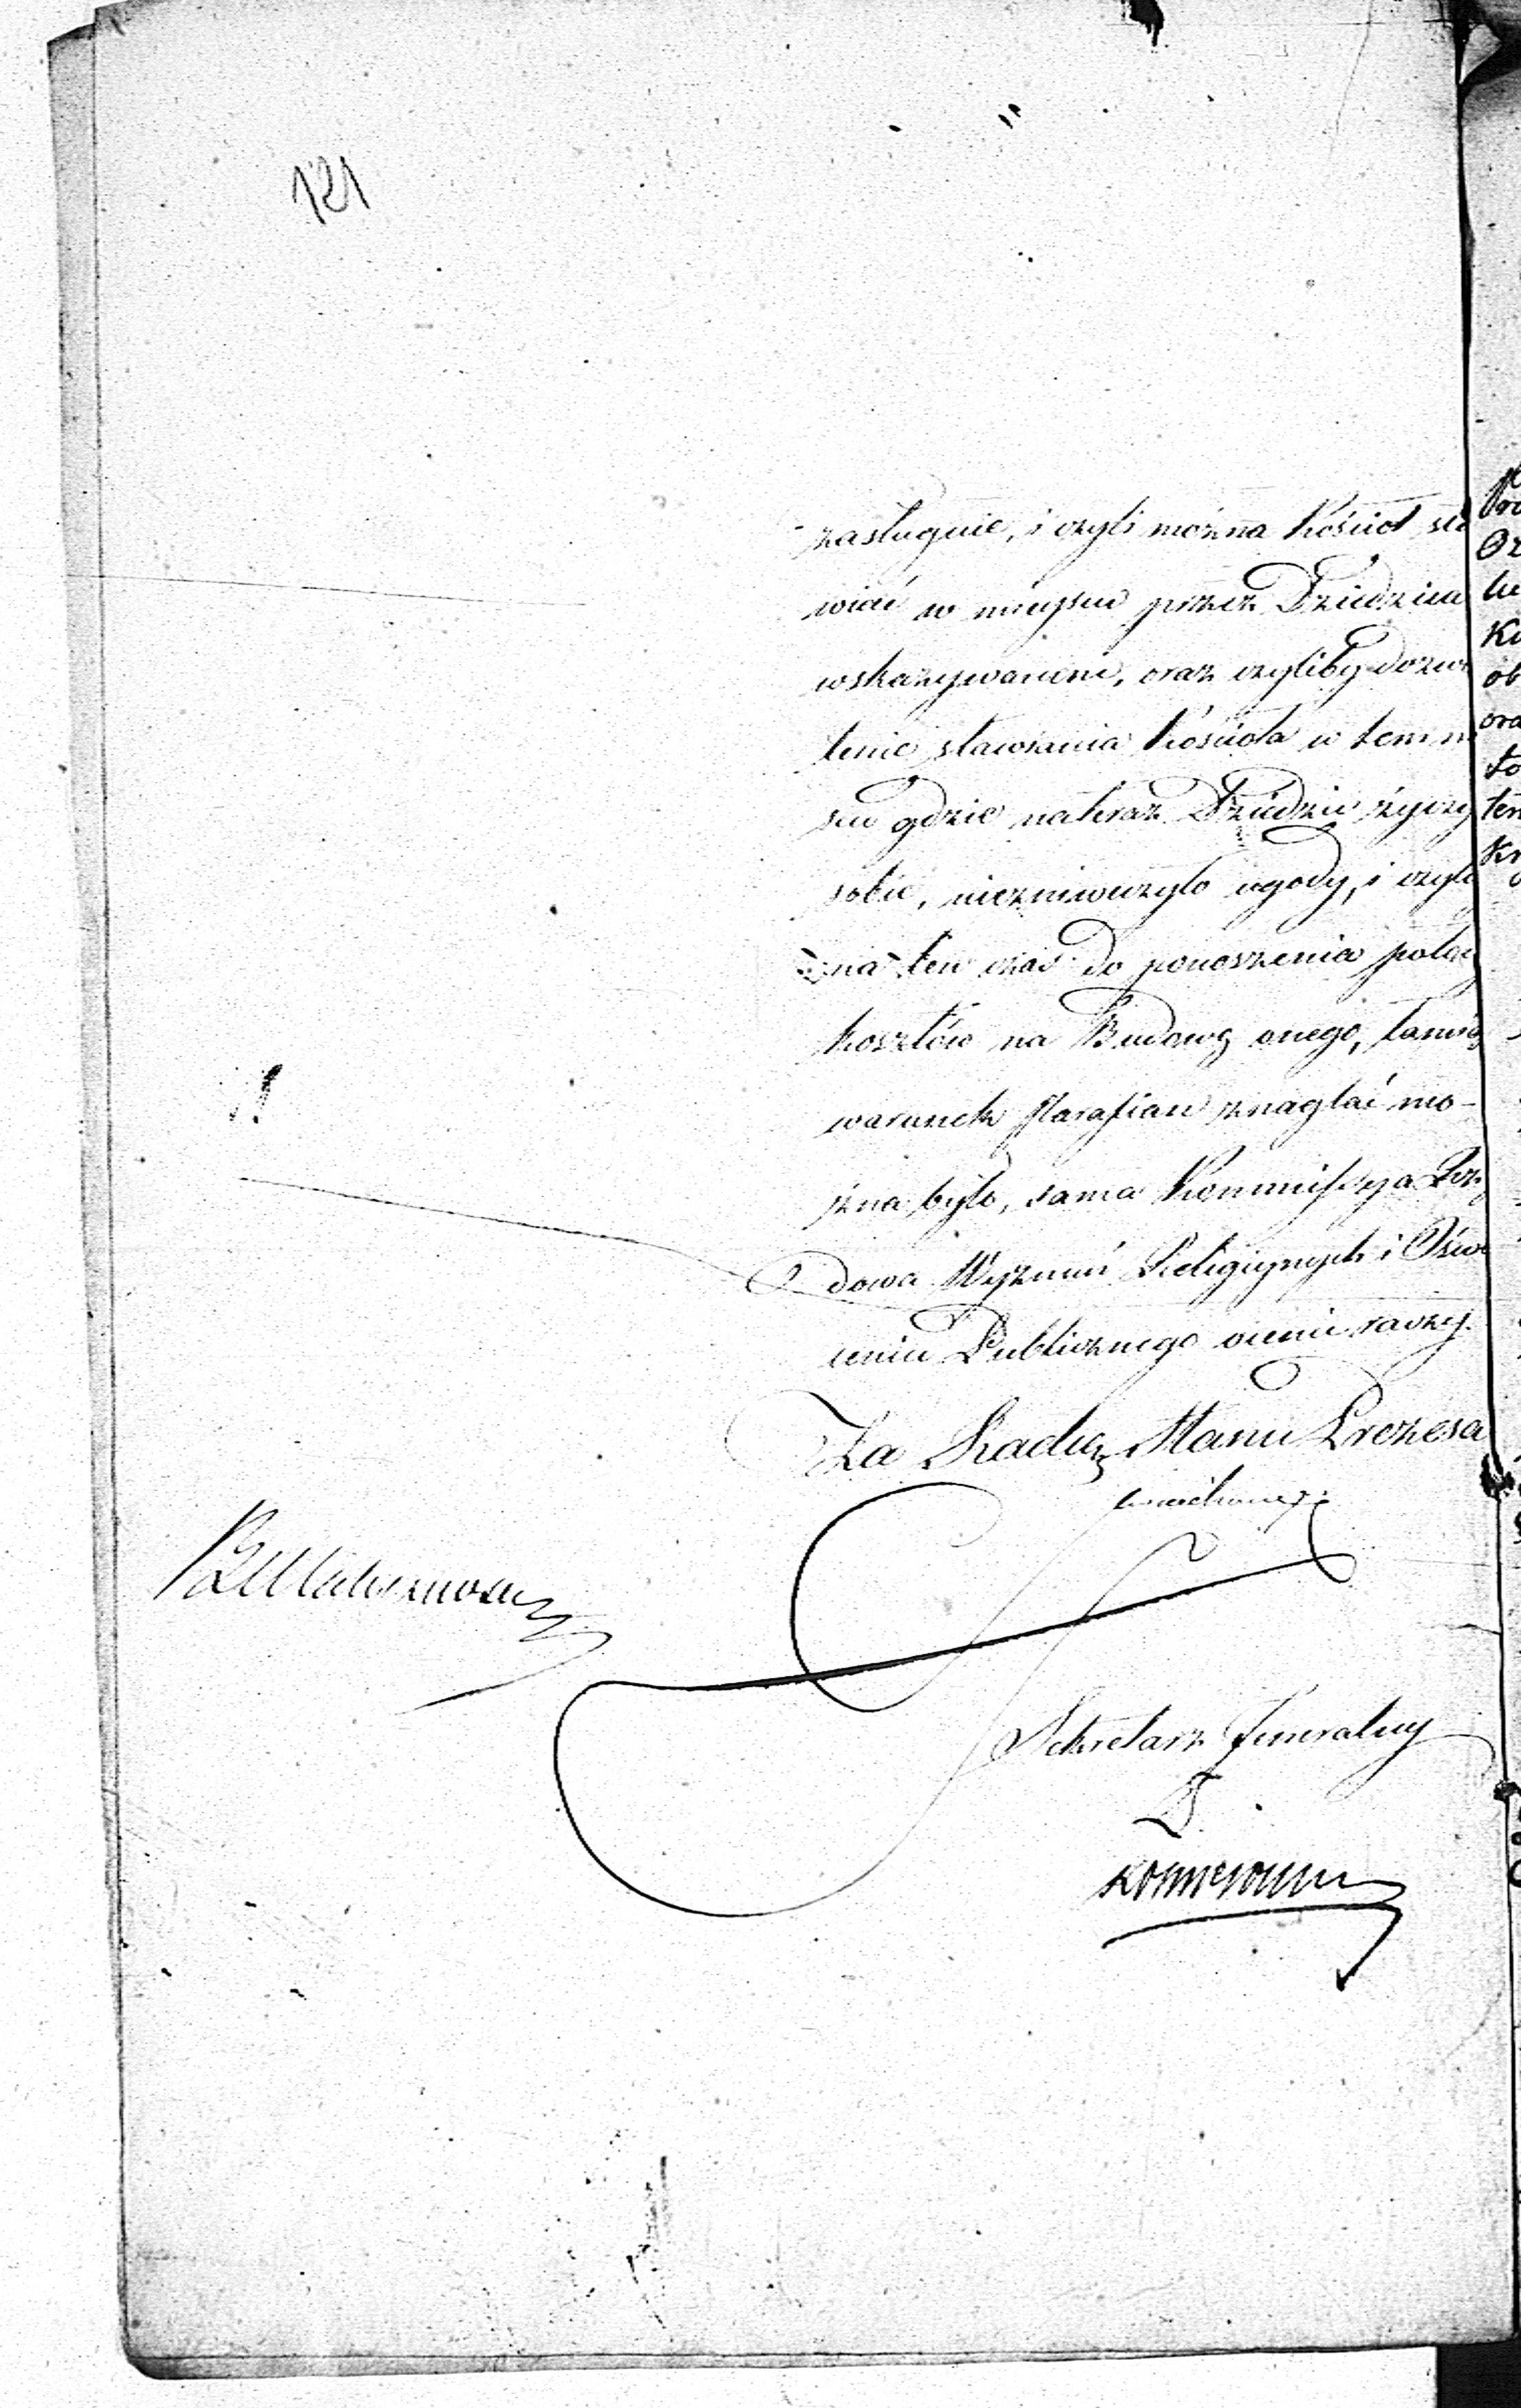 121
zasługuie, i czyli można Kościoł sta
wiać w mieyscu przez Dziedzica
wskazywanem, oraz czyliby dozwo
lenie stawiania Kościoła w tem m
scu gdzie nateraz Dziedzic życzy
sobie, nieznweczyło ugody, i czyli
na ten czas do ponoszenia połowy
kosztów na Budowę onego,
warunek Parafian znaglać mo-
żna było, sama Kommissya Rzą
dowa Wyznań Religiynych i Oświ
cenia Publicznego ocenić raczy.
Za Radcę Stanu Prezesa
Sekretarz Jeneralny